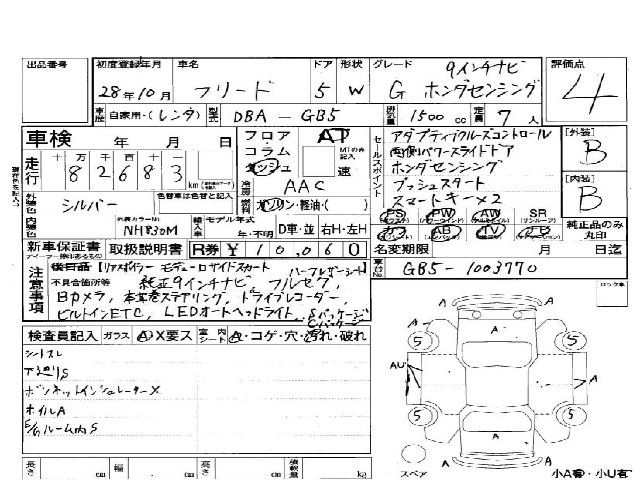 出品番号 初度登録年月 車名 ドア 形状 グレード 9インチナビ 評価点
28年10月 フリード 5 W G ホンダセンシング 4
車歴 自家用・(レンタ) 型式 DBA-GB5 排気量 1500cc 定員 7人
車検 年 月 日 フロア AT セールスポイント アダプティブクルーズコントロール [外装]
コラム MTのみ記入 両側パワースライドドア B
走行 十 万 千 百 十 一 インパネ 速 ホンダセンシング
8 2 6 8 3 km 冷房 AAC プッシュスタート [内装]
外装色 シルバー 色替車は色替と記入 燃料 ガソリン・軽油・( ) スマートキー×2 B
外装カラーNo. NH830M 輸入車 モデル年式 年・不明 D車・並 右H・左H
PS PW AW SR
カワ AB TV ナビ 純正品のみ丸印
新車保証書 取扱説明書 R券 ¥10,060 名変期限 月 日迄
注意事項 後日品 リアスポイラー モデューロサイドスカート ハーフレザーシート 車台No. GB5-1003770
不具合箇所等 純正9インチナビ, フルセグ, ロック車
Bカメラ, 本革巻ステアリング, ドライブレコーダー,
ビルトインETC, LEDオートヘッドライト
Sパッケージ
Cパッケージ
検査員記入 ガラス A X要ス 室内シート A・コゲ・穴・汚れ・破れ
シートスレ
下廻りS
ボンネットインシュレーターX
ホイルA
ルーム内S
A
A
AU
A
A
A
5
5
5
5
長さ cm 幅 cm 高さ cm 積載量 kg スペア 小A・小U